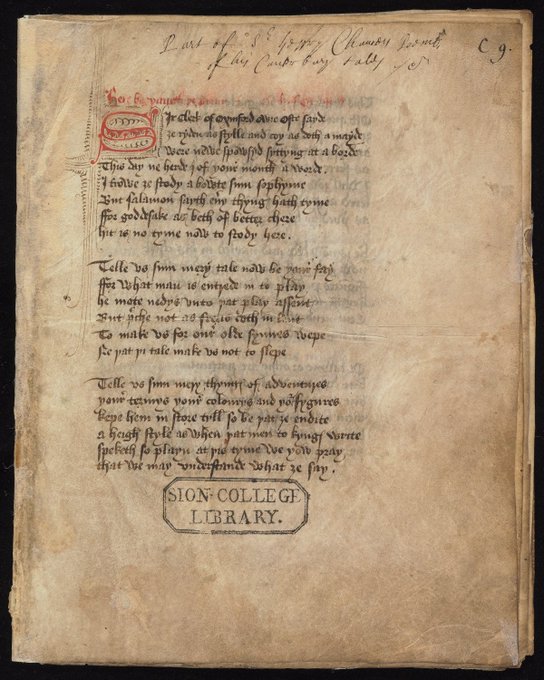 Part of Sr Henry Chaucers Poems
of his Canterbury tales
C 9.
Here
Sir Clerk of Oxinford owre Oste sayde
ze ryden as stylle and coy as doth a mayde
were newe spowsyd syttyng at a borde
This day ne herde j of your month a worde
I trowe ze stody a bowte sum sophyme
But salamon sayth euy thyng hath tyme
ffor goddsake as beth of better chere
hit is no tyme now to stody here .
Telle vs sum mery tale now be your fay
ffor what man is entrede in to play
he mote nedys unto pat play assent
But pche not as freris doth in lent
To make vs for our olde synnes wepe
Ne pat pi tale make vs not to slepe
Telle vs sum mery thyng of adventures
your termys your colourys and yor fygures
kepe hem in store tyll so be pat ze endite
a heigh style as when pat men to kyngs write
speketh so playn at pis tyme we yow pray
that we may understande what ze say .
SION COLLEGE
LIBRARY.